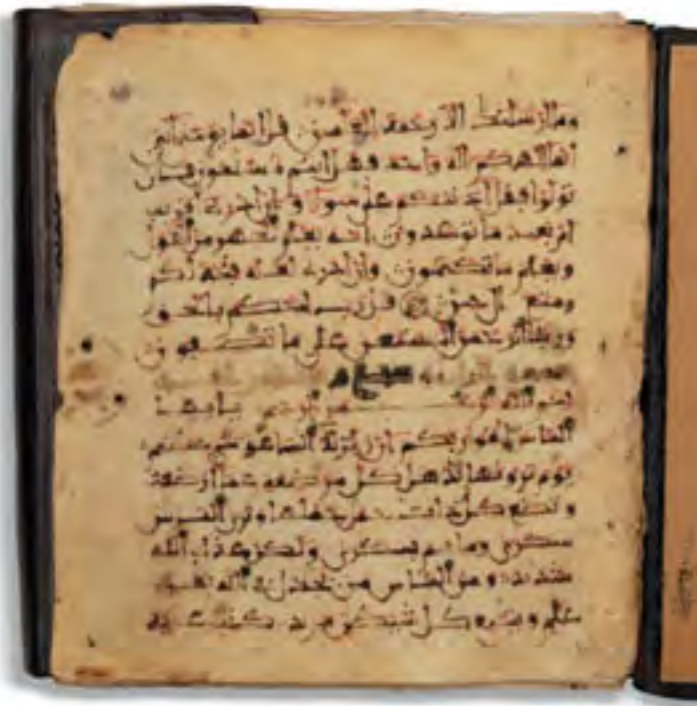 وما أرسلنك إلا رحمة للعلمين قل إنما يوحى إلي
أنما إلهكم إله واحد فهل أنتم مسلمون فإن
تولوا فقل اذنتكم على سواء وإن أدري أقريب
أم بعيد ما توعدون إنه يعلم الجهر من القول
ويعلم ما تكتمون وإن أدري لعله فتنة لكم
ومتع إلى حين قل رب احكم بالحق
وربنا الرحمن المستعان على ما تصفون
بسم الله الرحمن الرحيم يأيها
الناس اتقوا ربكم إن زلزلة الساعة شيء عظيم
يوم ترونها تذهل كل مرضعة عما أرضعت
وتضع كل ذات حمل حملها وترى الناس
سكرى وما هم بسكرى ولكن عذاب الله
شديد ومن الناس من يجدل في الله بغير
علم ويتبع كل شيطن مريد كتب عليه